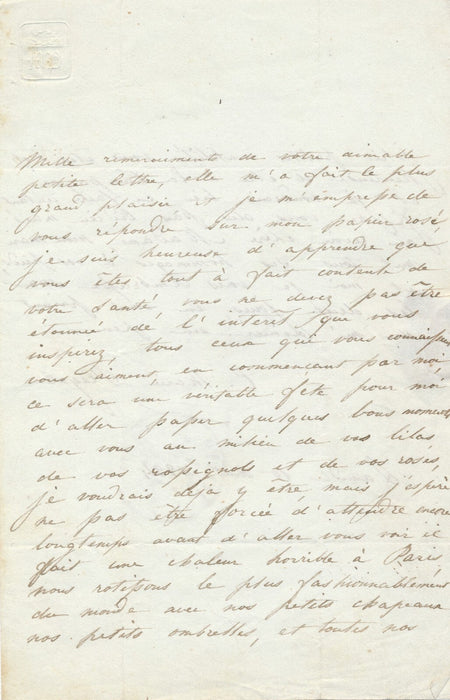 Mille remerciments de votre aimable
petite lettre, elle m'a fait le plus
grand plaisir et je m'empresse de
vous répondre sur mon papier rosé,
je suis heureuse d'apprendre que
vous êtes tout à fait contente de
votre santé, vous ne devez pas être
étonnée de l'interet que vous
inspirez, tous ceux que vous connaissez
vous aiment, en commencant par moi,
ce sera une véritable fête pour moi
d'aller passer quelques bons moments
avec vous au milieu de vos lilas,
de vos rossignols et de vos roses,
je voudrais deja y être, mais j'espère
ne pas être forcée d'attendre encore
longtemps avant d'aller vous voir il
fait une chaleur horrible à Paris
nous rotissons le plus fashionnablement
du monde avec nos petits chapeaux
nos petits ombrelles, et toutes nos